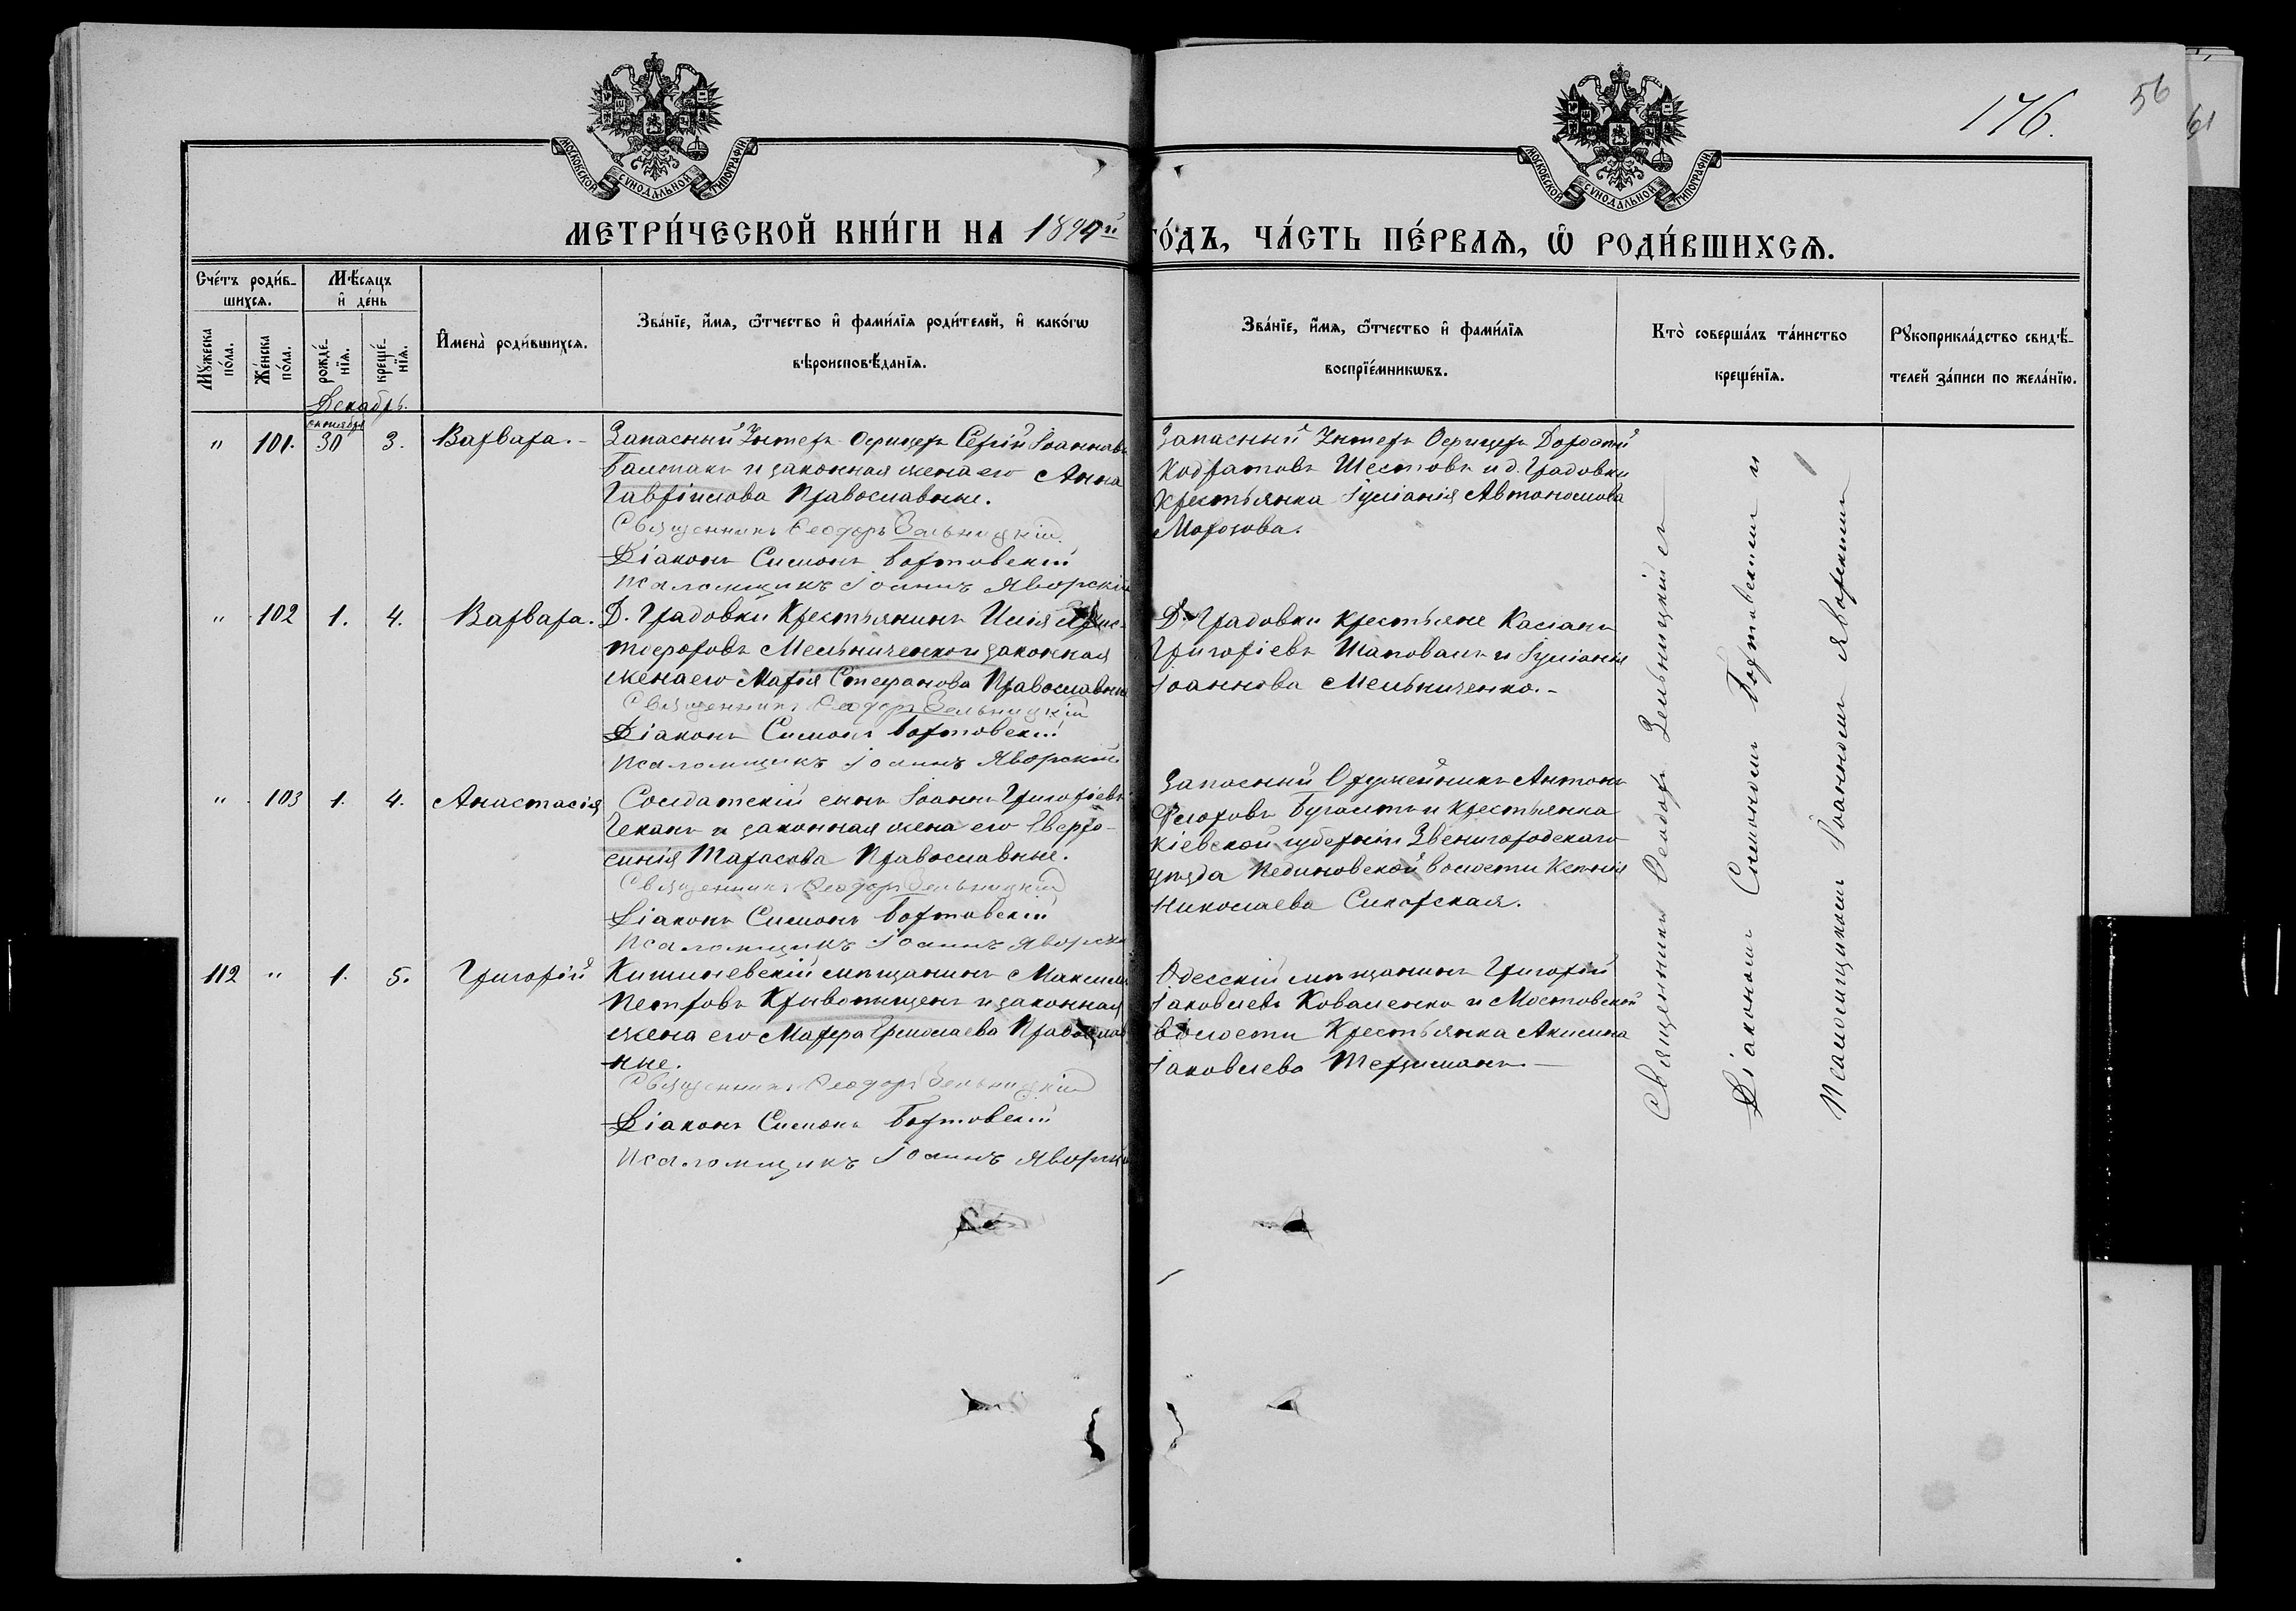 176.
56
61
МОСКОВСКОЙ СѴНОДАЛЬНОЙ ТИПОГРАФІИ.
МОСКОВСКОЙ СѴНОДАЛЬНОЙ ТИПОГРАФІИ.
МЕТРИ́ЧЕСКОЙ КНИ́ГИ НА 1899й
ГО́ДЪ, ЧА́СТЬ ПЕ́РВАѦ, Ѡ РОДИ́ВШИХСѦ.
Сче́тъ роди́в-
шихсѧ.
Мѣ́сѧцъ
и҆ де́нь
Мꙋ́жеска
по́ла.
Же́нска
по́ла.
рожде́-
нїѧ.
креще́-
нїѧ.
И҆мена̀ роди́вшихсѧ.
Зва́нїе, и҆́мѧ, ѻ҆́тчество и҆ фами́лїѧ роди́телей, и҆ како́гѡ
вѣроисповѣ́данїѧ.
Зва́нїе, и҆́мѧ, ѻ҆́тчество и҆ фами́лїѧ
воспрїе́мникѡвъ.
Кто̀ соверша́лъ та́инство
креще́нїѧ.
Рꙋкоприкла́дство свидѣ́-
телей за́писи по жела́нїю.
Декабрь.
" 101. 30 3. Варвара.
Запасный Унтеръ Офицеръ Сергій Іоанновъ
и законная жена его Анна
Гавріилова Православные.
Священникъ Ѳеодоръ Зельницкій
Діаконъ Симонъ Бортовскій
Псаломщикъ Іоаннъ Яворскій
Запасный Унтеръ Офицеръ Дороѳей
Кодратовъ Шестовъ и д. Градовки
Крестьянка Іуліанія Автономова
Морозова.
" 102 1. 4. Варвара.
Д. Градовки Крестьянинъ Илія Хрис-
тофоровъ Мельниченко и законная
жена его Марія Стефанова Православные
Священникъ Ѳеодоръ Зельницкій
Діаконъ Симонъ Бортовскій
Псаломщикъ Іоаннъ Яворскій
Д. Градовки крестьяне Касіанъ
Григоріевъ Шаповалъ и Іуліанія
Іоаннова Мельниченко.-
" 103 1. 4. Анастасія
Солдатскій сынъ Іоаннъ Григоріевъ
Чеканъ и законная жена его Евфро-
синія Тарасова Православные.
Священникъ Ѳеодоръ Зельницкій
Діаконъ Симонъ Бортовскій
Псаломщикъ Іоаннъ Яворскій
Запасный Оружейникъ Антонъ
и Крестьянка
Кіевской губерніи Звенигородскаго
уѣзда Пединовской волости Ксенія
Николаева Сикорская.
112 " 1. 5. Григорій
Кишиневскій мѣщанинъ Максимъ
Петровъ и законная
жена его Марѳа Ермолаева Православ
ные.
Священникъ Ѳеодоръ Зельницкій
Діаконъ Симонъ Бортовскій
Псаломщикъ Іоаннъ Яворскій
Одесскій мѣщанинъ Григорій
Іаковлевъ Коваленко и Мостовской
волости Крестьянка Акилина
Іаковлева
Священникъ Ѳеодоръ Зельницкій съ
Діакономъ Симономъ Бортовскимъ и
Псаломщикомъ Іоанномъ Яворскимъ